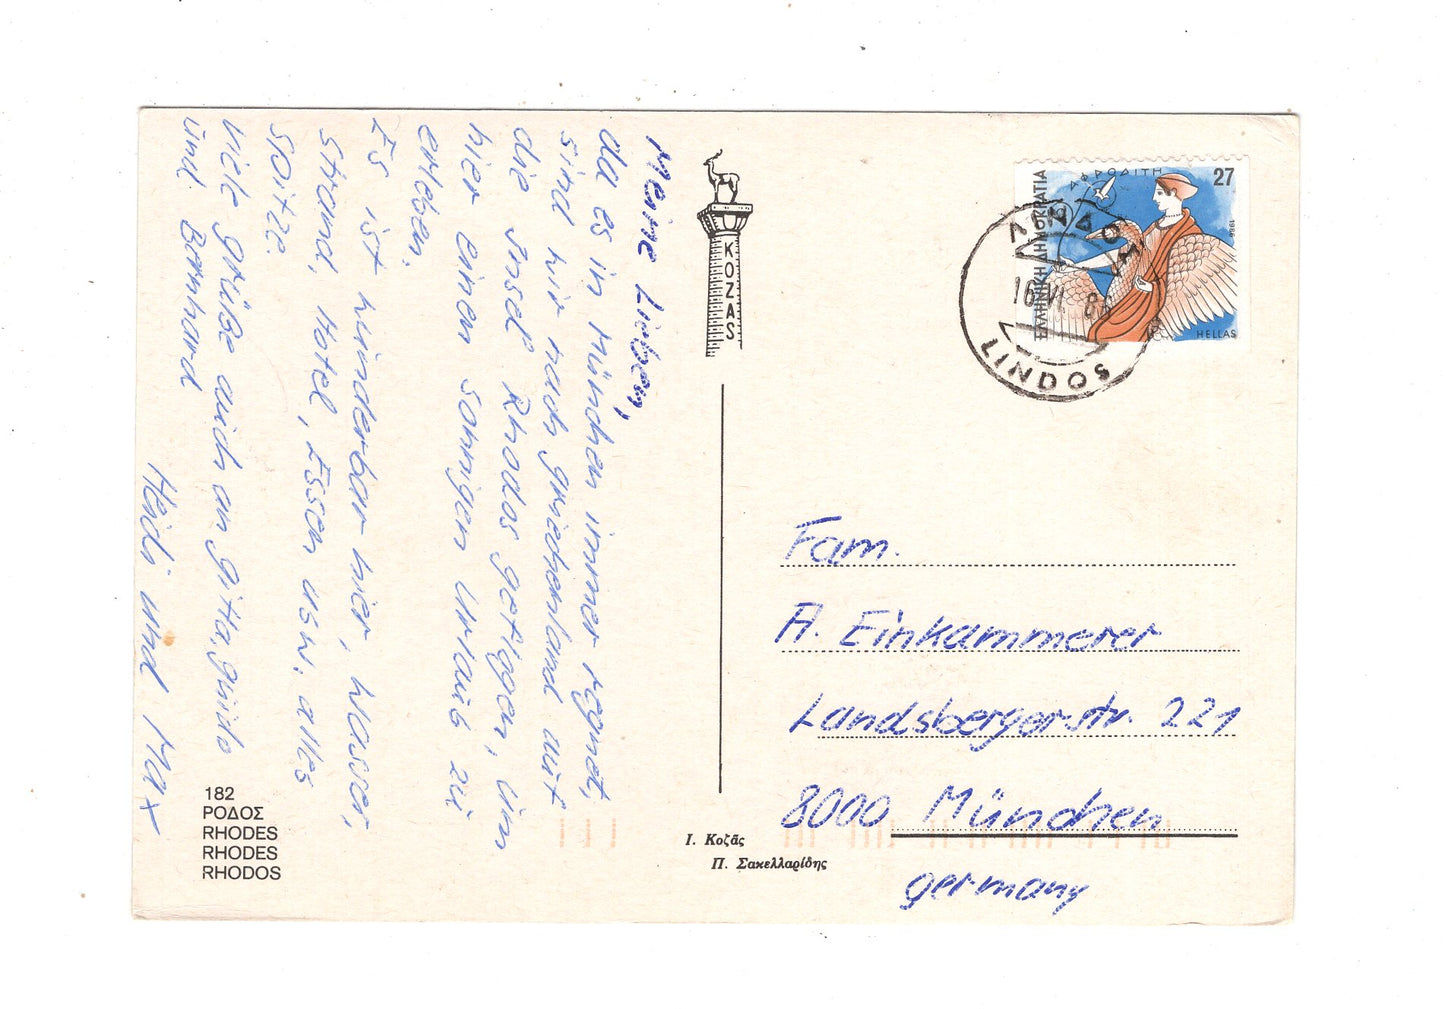 Meine Lieben,
da es in München immer regnet,
sind wir nach Griechenland auf
die Insel Rhodos geflogen, um
hier einen sonnigen Urlaub zu
erleben.
Es ist wunderbar hier, Wasser,
Strand, Hotel, Essen usw. alles
Spitze.
Viele Grüße auch an Gitta, Guido
und Bernhard
Heidi und Max
182
ΡΟΔΟΣ
RHODES
RHODES
RHODOS
KOZAS
Ι. Κοζᾶς
Π. Σακελλαρίδης
ΕΛΛΗΝΙΚΗ ΔΗΜΟΚΡΑΤΙΑ
ΑΦΡΟΔΙΤΗ
27
1986
HELLAS
ΛΙΝΔΟΣ
16 VI 8
LINDOS
Fam.
A. Einkammerer
Landsbergerstr. 221
8000 München
Germany